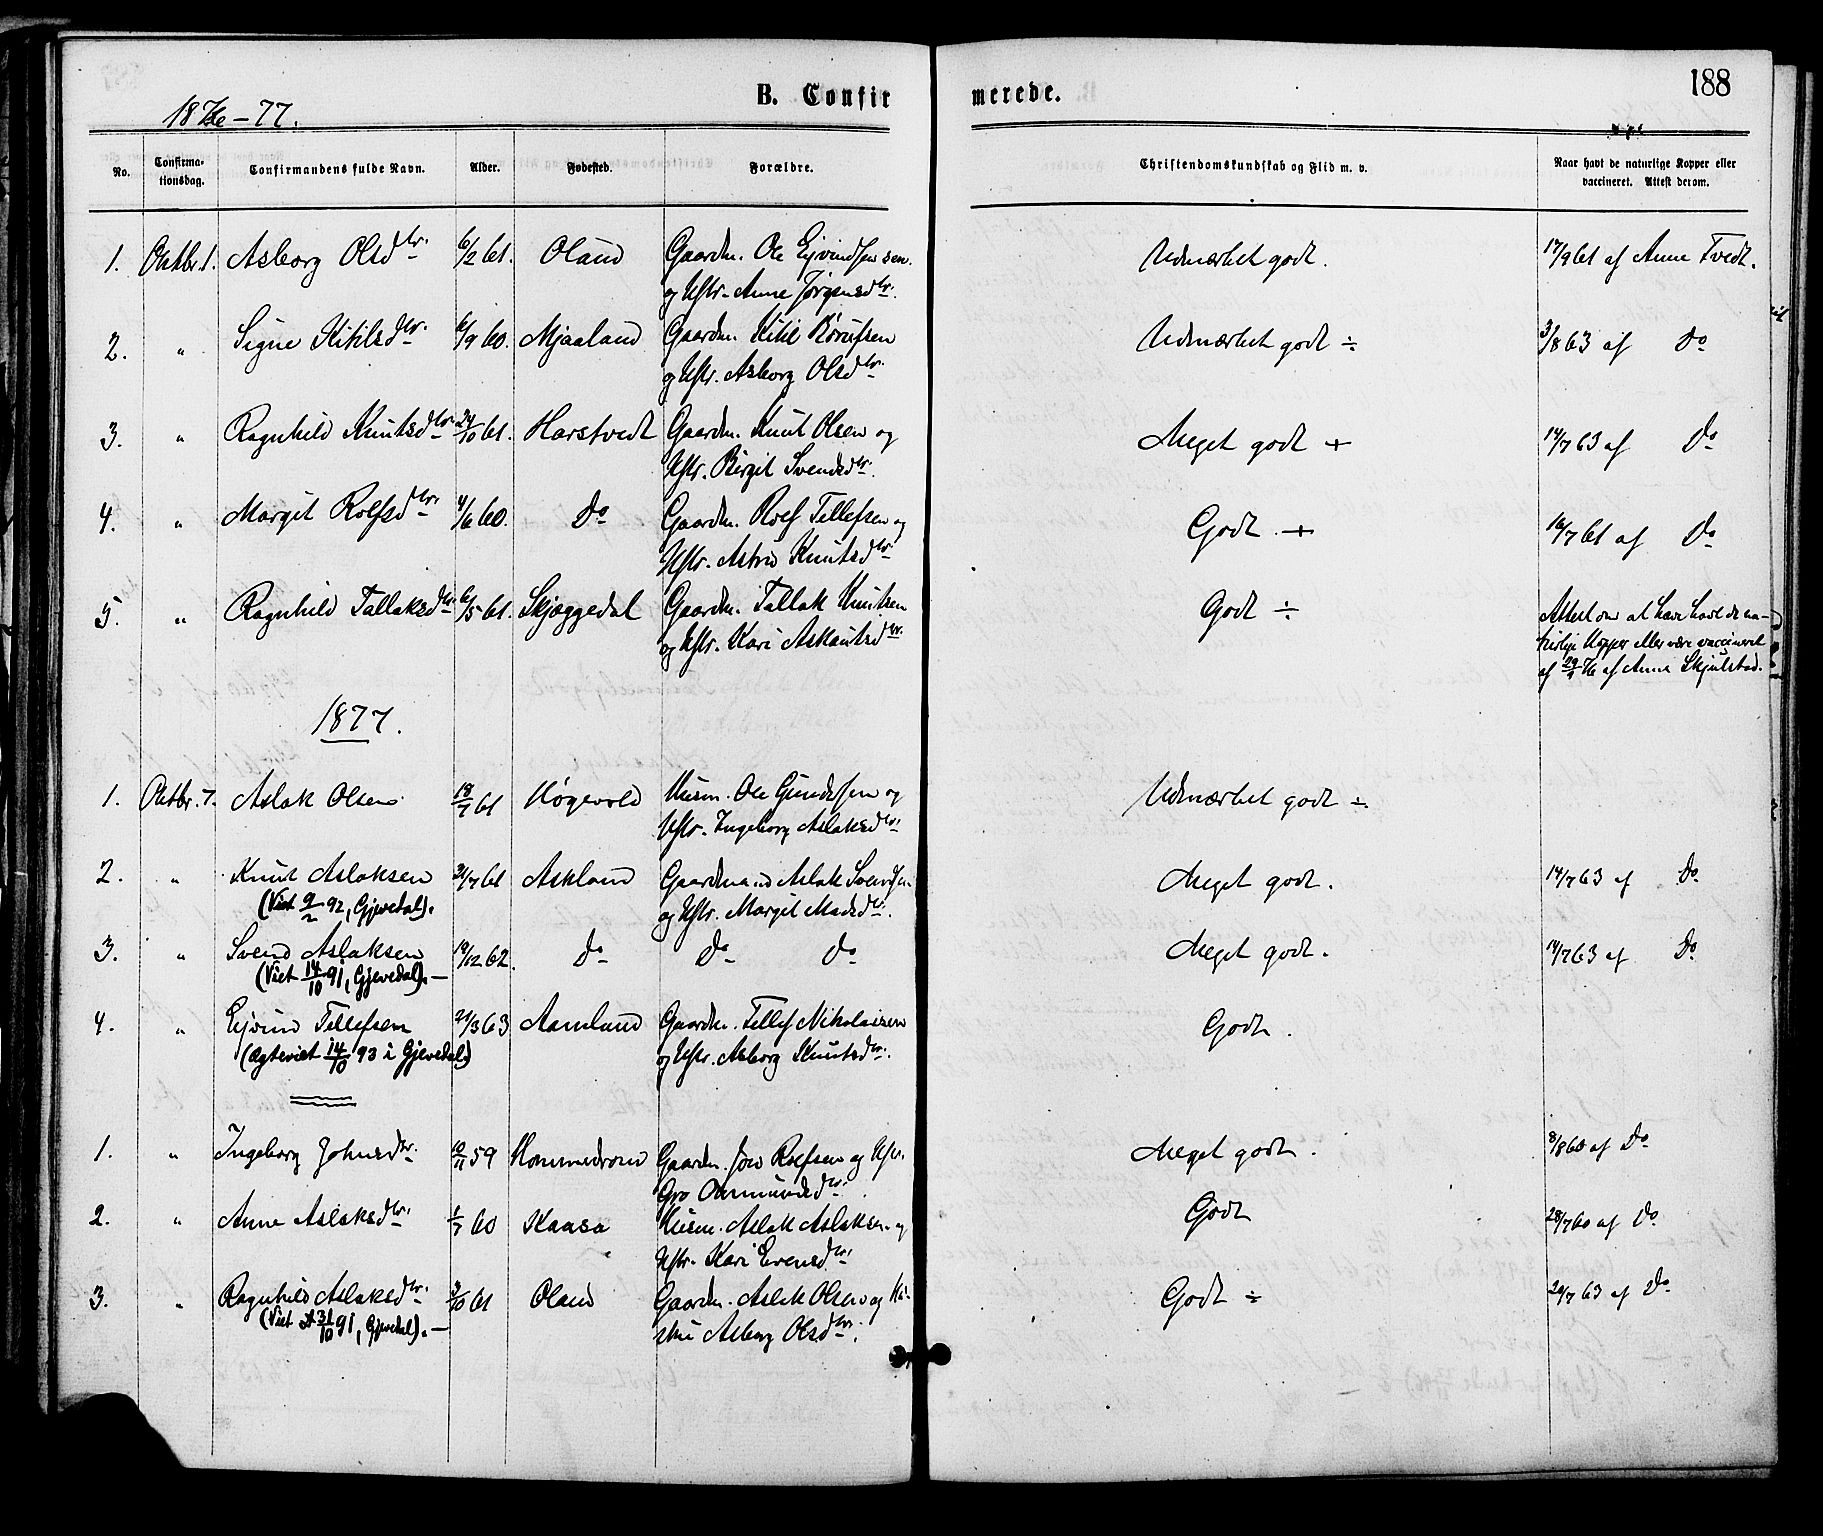 1876–77.
B. Confir merede.
188
No. Confirma-tionsdag. Confirmandens fulde Navn. Alder. Fødested. Forældre. Christendomskundskab og Flid m. v. Naar havt de naturlige Kopper eller vaccineret. Attest derom.
1. Oktbr. 1. Asborg Olsdtr. 6/2 61. Oland Gaardm. Ole Ejvindssen og Hstr. Anne Jørgensdtr. Udmærket godt. 17/9 61 af Anne Tvedt.
2. " Signe Kitilsdtr. 6/9 60. Mjaaland Gaardm. Kitil Rørufsen og Hstr. Asborg Olsdtr. Udmærket godt ÷ 3/8 63 af Do
3. " Ragnhild Knutsdtr. 24/10 61. Harstvedt Gaardm. Knut Olsen og Hstr. Birgit Svendsdtr. Meget godt + 14/7 63 af Do
4. " Margit Rolfsdtr. 4/6 60. Do Gaardm. Roef Tellefsen og Hstr. Astrid Knutsdtr. Godt + 16/7 61 af Do
5. " Ragnhild Tallaksdtr. 6/5 61. Skjæggedal Gaardm. Tallak Knutsen og Hstr. Kari Aslandsdtr. Godt ÷ Attest om at have havt de na-
turlige Kopper eller være vaccineret
af 29/9 76 af Anne Skjulstad.
1877.
1. Oktbr. 7. Aslak Olsen 18/7 61 Høgevold Husm. Ole Gundersen og Hstr. Ingeborg Aslaksdtr. Udmærket godt ÷
2. " Knut Aslaksen 31/7 61 Askland Gaardmand Aslak Svendsen og Hstr. Margit Madsdtr. Meget godt. 14/7 63 af Do
(Viet 9/2 92, Gjevedal).
3. " Svend Aslaksen 19/12 62. Do Do Do Meget godt. 14/7 63 af Do
(Viet 14/10 91, Gjevedal). —
4. " Ejvind Tellefsen 21/3 63 Aamland Gaardm. Tellef Nikolaisen og Hstr. Asborg Knutsdtr. Godt.
(Ægteviet 14/10 93 i Gjevedal)
1. " Ingeborg Johnsdtr. 10/11 59 Hommedrom Gaardm. Jon Roefsen og Hstr. Gro Omundsdtr. Meget godt. 8/8 60 af Do
2. " Anne Aslaksdtr. 1/7 60 Kaasa Husm. Aslak Aslaksen og Hstr. Kari Evensdtr. Godt 28/7 60 af Do
3. " Ragnhild Aslaksdtr. 3/10 61 Oland Gaardm. Aslak Olsen og Hu-
stru Asborg Olsdtr. Godt ÷ 29/7 63 af Do
(Viet 31/10 91, Gjevedal). —